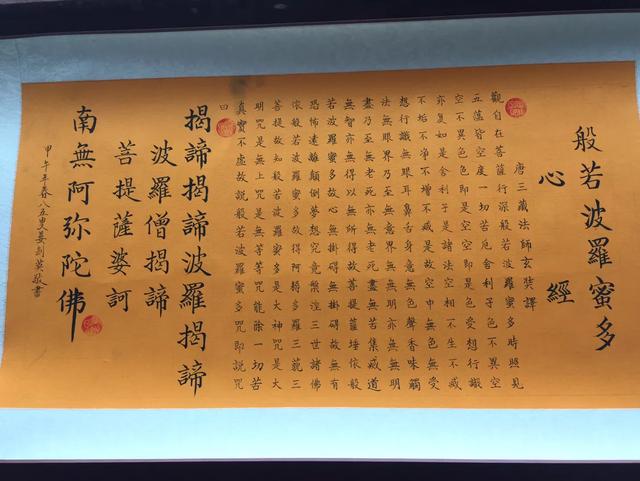 般若波羅蜜多
心經
唐三藏法師玄奘譯
觀自在菩薩行深般若波羅蜜多時照見
五蘊皆空度一切苦厄舍利子色不異空
空不異色色即是空空即是色受想行識
亦复如是舍利子是諸法空相不生不滅
不垢不净不增不減是故空中無色無受
想行識無眼耳鼻舌身意無色聲香味觸
法無眼界乃至無意界無無明亦無無明
盡乃至無老死亦無老死盡無苦集滅道
無智亦無得以無所得故菩提薩埵依般
若波羅蜜多故心無掛碍無掛碍故無有
恐怖遠離顛倒夢想究竟槃涅三世諸佛
依般若波羅蜜多故得阿耨多羅三藐三
菩提故知般若波羅蜜多是大神咒是大
明咒是無上咒是無等等咒能除一切苦
真實不虛故說般若波羅蜜多咒即說咒
曰
揭諦揭諦波羅揭諦
波羅僧揭諦
菩提薩婆訶
南無阿弥陀佛
甲午年春八五叟姜剑英敬書